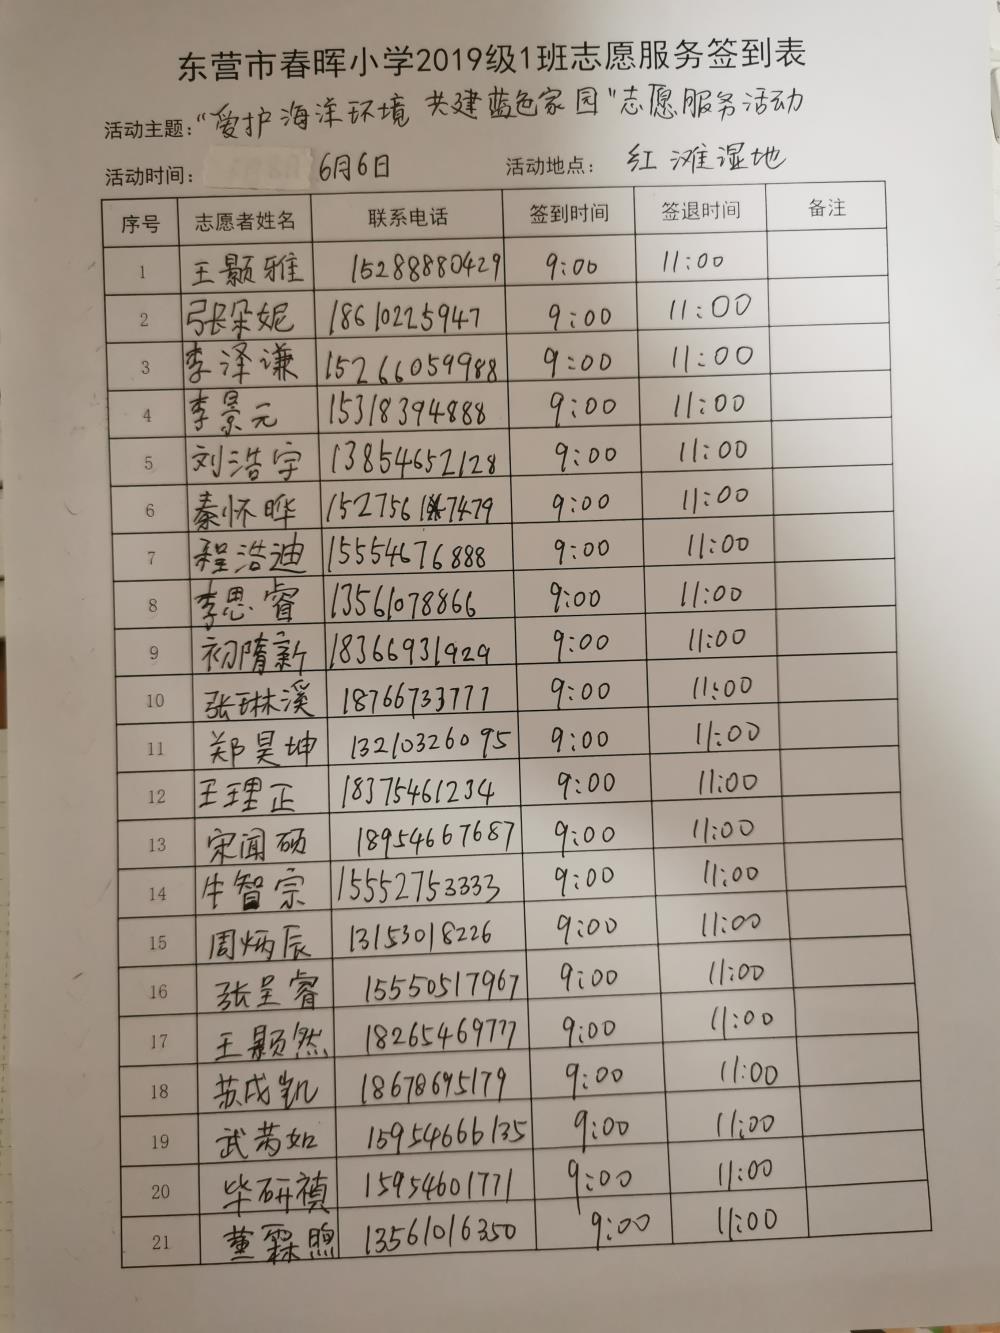 东营市春晖小学2019级1班志愿服务签到表
活动主题:“爱护海洋环境 共建蓝色家园”志愿服务活动
活动时间: 6月6日 活动地点: 红滩湿地
序号 志愿者姓名 联系电话 签到时间 签退时间 备注
1 王颢雅 15288880429 9:00 11:00
2 张朵妮 18610225947 9:00 11:00
3 李泽谦 15266059988 9:00 11:00
4 李景元 15318394888 9:00 11:00
5 刘浩宇 13854652128 9:00 11:00
6 秦怀晔 152756177479 9:00 11:00
7 程浩迪 15554676888 9:00 11:00
8 李思睿 13561078866 9:00 11:00
9 初隋新 18366931929 9:00 11:00
10 张琳溪 18766733777 9:00 11:00
11 郑昊坤 13210326095 9:00 11:00
12 王理正 18375461234 9:00 11:00
13 宋闻硕 18954667687 9:00 11:00
14 牛智宗 15552753333 9:00 11:00
15 周炳辰 13153018226 9:00 11:00
16 张呈睿 15550517967 9:00 11:00
17 王颢然 18265469777 9:00 11:00
18 苏成凯 18678695179 9:00 11:00
19 武芮如 15954666135 9:00 11:00
20 毕研禛 15954601771 9:00 11:00
21 董霖煦 13561016350 9:00 11:00